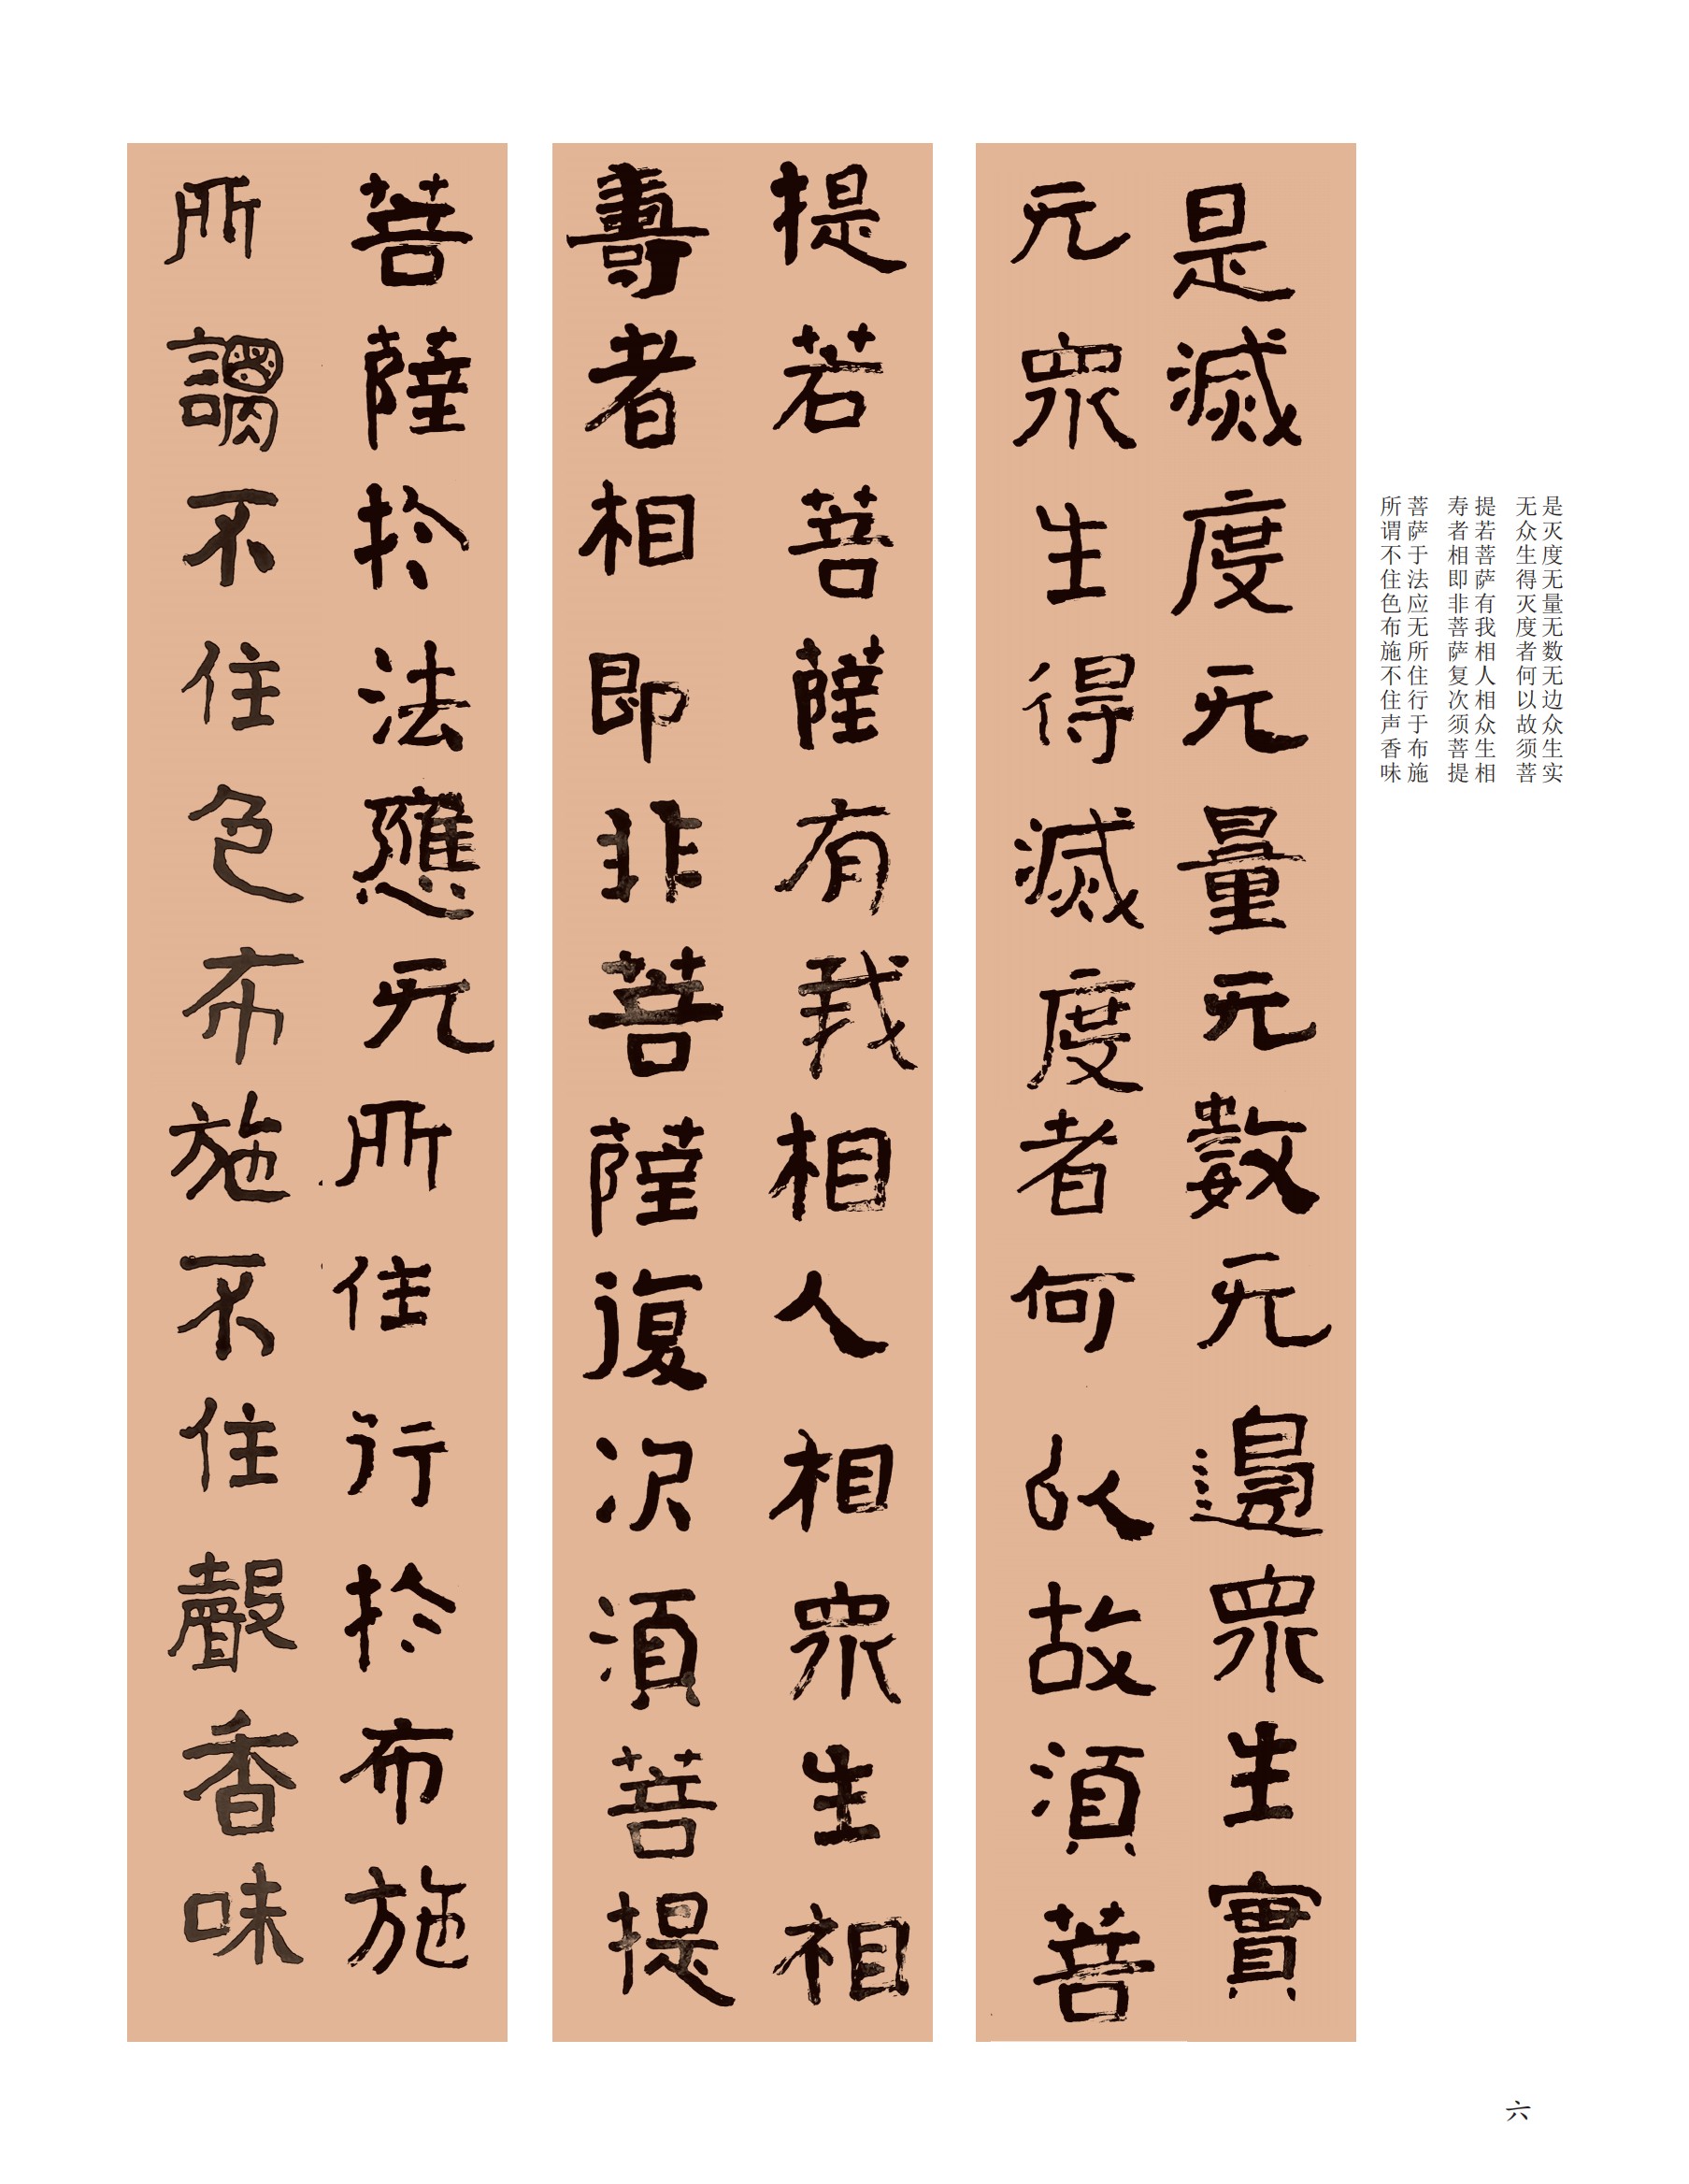 是灭度无量无数无边众生实
无众生得灭度者何以故须菩
提若菩萨有我相人相众生相
寿者相即非菩萨复次须菩提
菩萨于法应无所住行于布施
所谓不住色布施不住声香味
是滅度无量无數无邊眾生實
无眾生得滅度者何以故須菩
提若菩薩有我相人相眾生相
壽者相即非菩薩復次須菩提
菩薩於法應无所住行於布施
所謂不住色布施不住聲香味
六